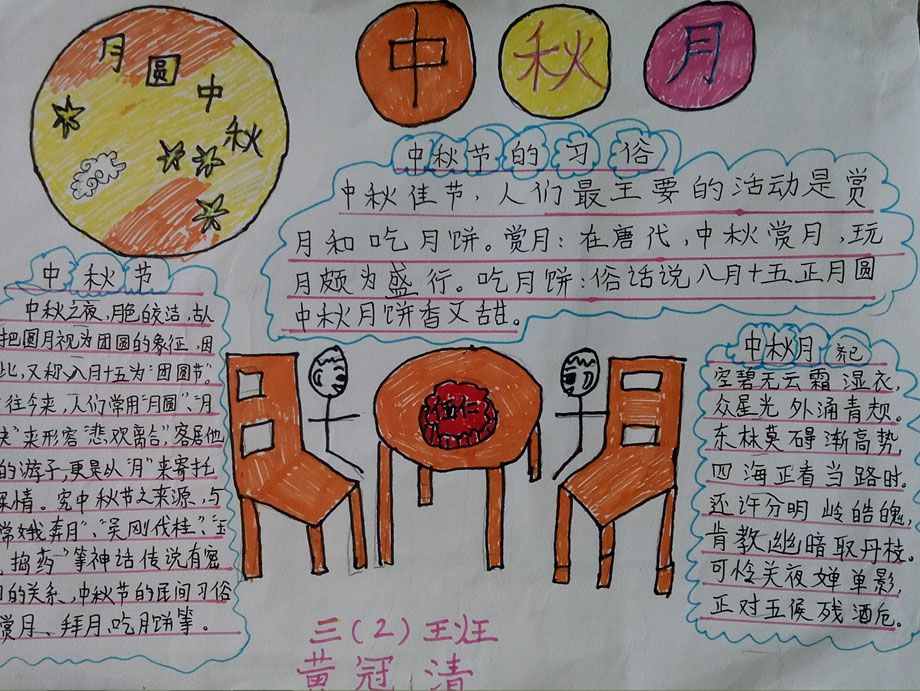 月圆中秋
中秋月
中秋节的习俗
中秋佳节，人们最王要的活动是赏
月和吃月饼。赏月：在唐代，中秋赏月，玩
月颇为盛行。吃月饼：俗话说八月十五正月圆
中秋月饼香又甜。
中秋节
中秋之夜，月色皎洁，古人
把圆月视为团圆的象征，因
此，又称八月十五为“团圆节”。
往今来，人们常用“月圆”、“月
缺”来形容“悲欢离合”，客居他
的游子，更是从“月”来寄托
深情。究中秋节之来源，与
嫦娥奔月”、“吴刚伐桂”、“玉
捣药”等神话传说有密
的关系、中秋节的民间习俗
赏月、拜月、吃月饼等。
伍仁
中秋月
空碧无云霜湿衣，
众星光外涌青规。
东林莫碍渐高势
四海正看当路时。
还许分明岭皓魄，
肯教幽暗取丹枝。
可怜关夜婵单影，
正对五候残酒卮。
三（2）王
黄冠清